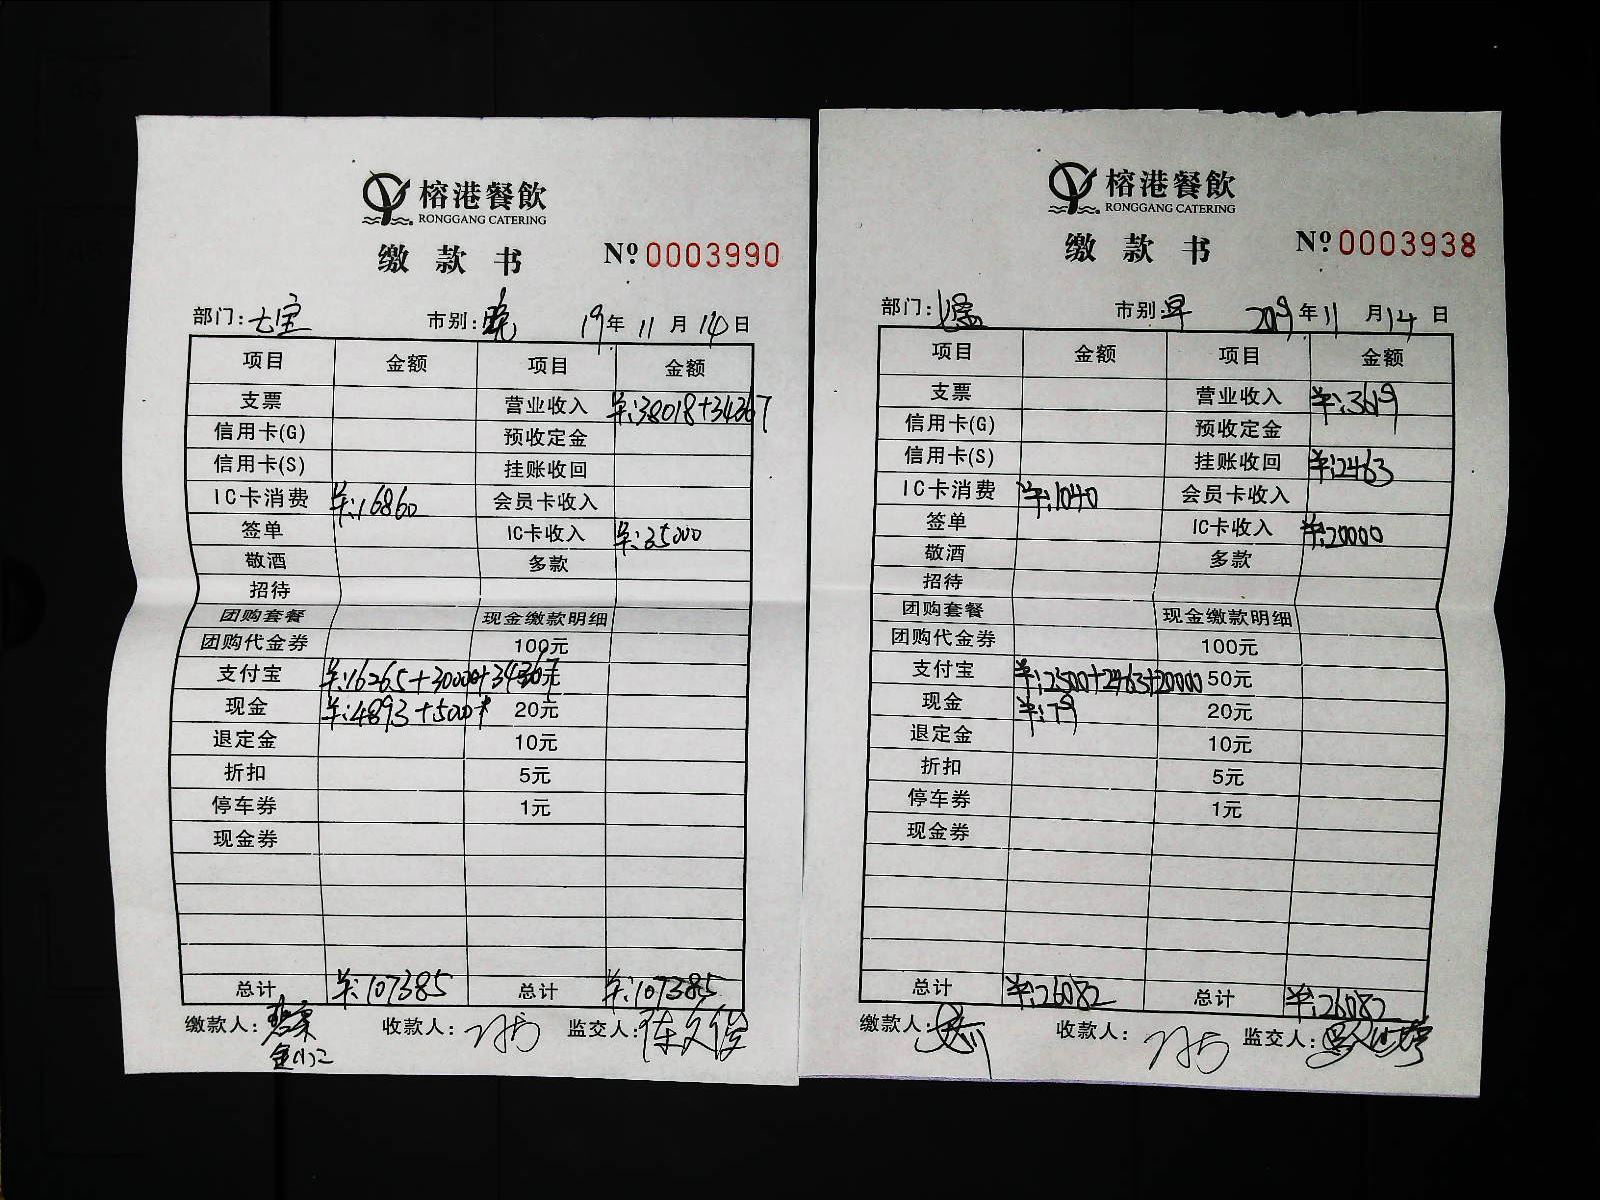 榕港餐飲
RONGGANG CATERING
缴款书 Nº 0003990
部门: 七宝 市别: 晚 19年11月14日
项目 金额 项目 金额
支票 营业收入 ¥:38018+34367
信用卡(G) 预收定金
信用卡(S) 挂账收回
IC卡消费 ¥:16860 会员卡收入
签单 IC卡收入 ¥:35000
敬酒 多款
招待
团购套餐 现金缴款明细
团购代金券 100元
支付宝 ¥:16265+30000+34367 50元
现金 ¥:4893+5000 20元
退定金 10元
折扣 5元
停车券 1元
现金券
总计 ¥:107385 总计 ¥:107385
缴款人: 收款人: 监交人: 陈文俊
榕港餐飲
RONGGANG CATERING
缴款书 Nº 0003938
部门: 市别: 早 2019年11月14日
项目 金额 项目 金额
支票 营业收入 ¥:3619
信用卡(G) 预收定金
信用卡(S) 挂账收回 ¥:2463
IC卡消费 ¥:1040 会员卡收入
签单 IC卡收入 ¥:20000
敬酒 多款
招待
团购套餐 现金缴款明细
团购代金券 100元
支付宝 ¥:2500+2463+20000 50元
现金 ¥:79 20元
退定金 10元
折扣 5元
停车券 1元
现金券
总计 ¥:26082 总计 ¥:26082
缴款人: 收款人: 监交人: